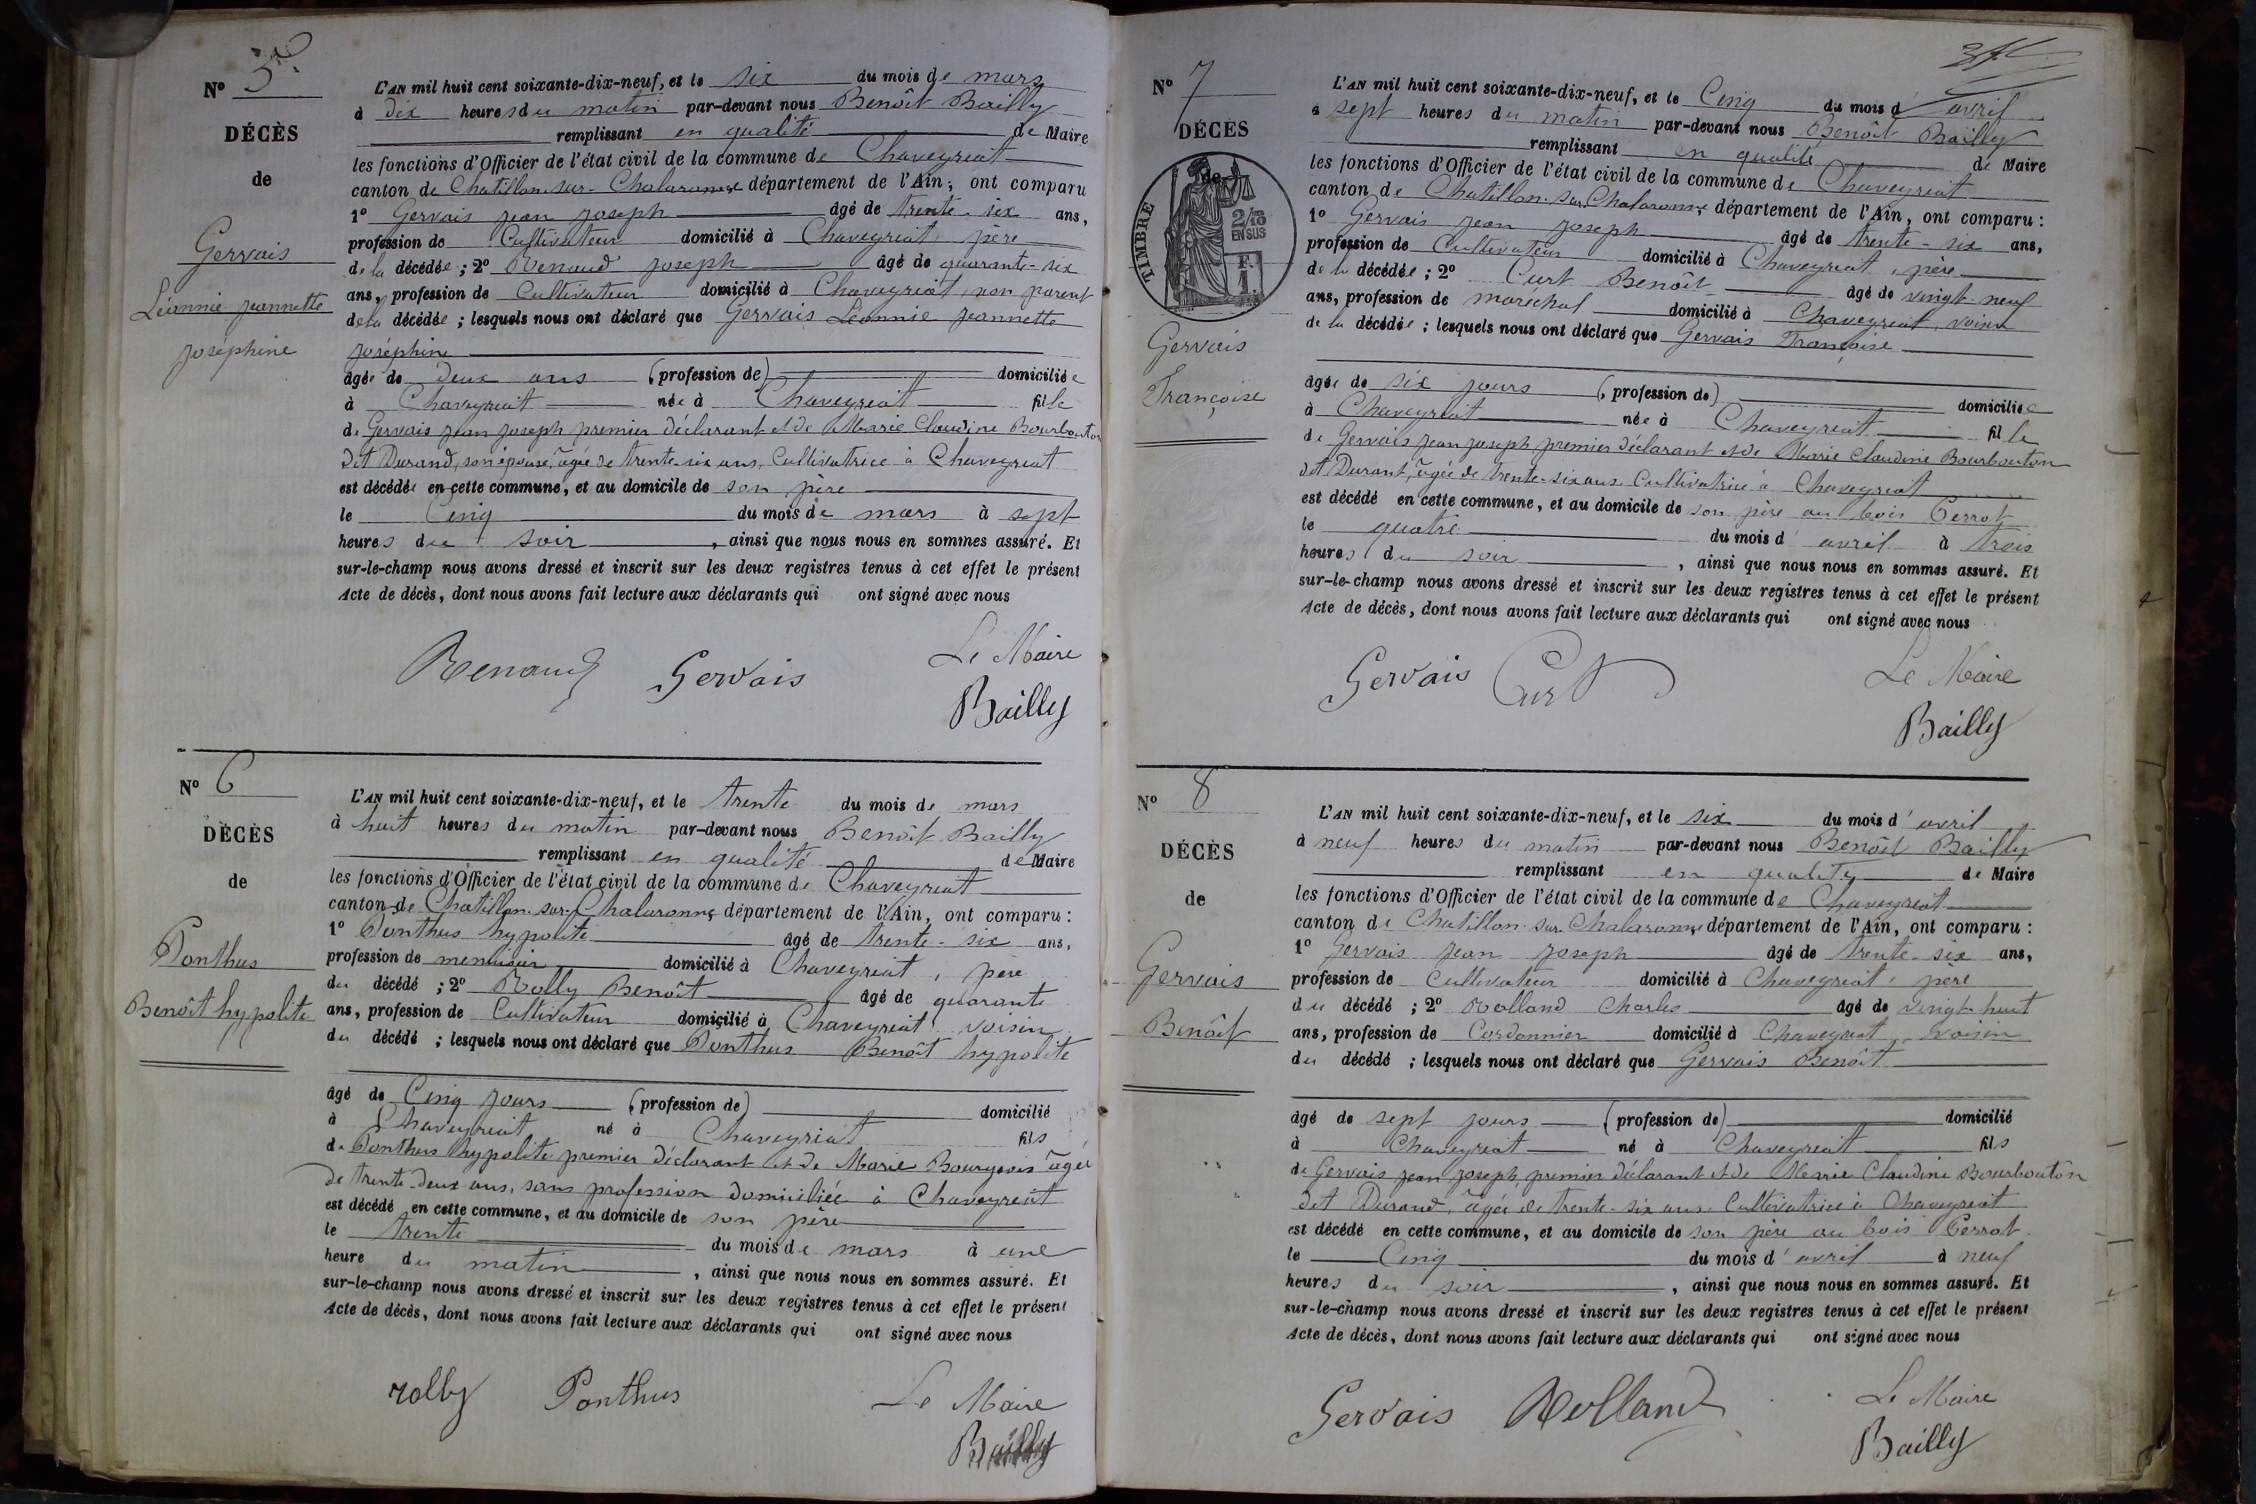 Nº 5
DÉCÈS
de
Gervais
Léonnie Jeannette
Joséphine
L'AN mil huit cent soixante-dix-neuf, et le six du mois de mars
à dix heures du matin par-devant nous Benoît Bailly
remplissant en qualité de Maire
les fonctions d'Officier de l'état civil de la commune de Chaveyriat
canton de Chatillon-sur-Chalaronne département de l'Ain, ont comparu
1º Gervais Jean Joseph âgé de trente-six ans,
profession de Cultivateur domicilié à Chaveyriat, père
de la décédée ; 2º Renaud Joseph âgé de quarante-six
ans, profession de Cultivateur domicilié à Chaveyriat, non parent
de la décédée ; lesquels nous ont déclaré que Gervais Léonnie Jeannette
Joséphine
âgée de deux ans (profession de) domiciliée
à Chaveyriat née à Chaveyriat fille
de Gervais Jean Joseph premier déclarant et de Marie Claudine Bourbouton
dit Durand, son épouse, âgée de trente-six ans, Cultivatrice à Chaveyriat
est décédée en cette commune, et au domicile de son père
le Cinq du mois de mars à sept
heures du soir, ainsi que nous nous en sommes assuré. Et
sur-le-champ nous avons dressé et inscrit sur les deux registres tenus à cet effet le présent
Acte de décès, dont nous avons fait lecture aux déclarants qui ont signé avec nous
Renaud Gervais Le Maire
Bailly
Nº 6
DÉCÈS
de
Ponthus
Benoît hypolite
L'AN mil huit cent soixante-dix-neuf, et le trente du mois de mars
à huit heures du matin par-devant nous Benoît Bailly
remplissant en qualité de Maire
les fonctions d'Officier de l'état civil de la commune de Chaveyriat
canton de Chatillon-sur-Chalaronne département de l'Ain, ont comparu :
1º Ponthus hypolite âgé de trente-six ans,
profession de menuisier domicilié à Chaveyriat, père
du décédé ; 2º Rolly Benoît âgé de quarante
ans, profession de Cultivateur domicilié à Chaveyriat, voisin
du décédé ; lesquels nous ont déclaré que Ponthus Benoît hypolite
âgé de Cinq jours (profession de) domicilié
à Chaveyriat né à Chaveyriat fils
de Ponthus hypolite premier déclarant et de Marie Bourgeois âgée
de trente-deux ans, sans profession domiciliée à Chaveyriat
est décédé en cette commune, et au domicile de son père
le trente du mois de mars à une
heure du matin, ainsi que nous nous en sommes assuré. Et
sur-le-champ nous avons dressé et inscrit sur les deux registres tenus à cet effet le présent
Acte de décès, dont nous avons fait lecture aux déclarants qui ont signé avec nous
rolly Ponthus Le Maire
Bailly
Nº 7
DÉCÈS
de
TIMBRE
2/10 EN SUS
Gervais
Françoise
L'AN mil huit cent soixante-dix-neuf, et le Cinq du mois d'avril
à sept heures du matin par-devant nous Benoît Bailly
remplissant en qualité de Maire
les fonctions d'Officier de l'état civil de la commune de Chaveyriat
canton de Chatillon-sur-Chalaronne, département de l'Ain, ont comparu :
1º Gervais Jean Joseph âgé de trente-six ans,
profession de Cultivateur domicilié à Chaveyriat, père
de la décédée ; 2º Curt Benoît âgé de vingt-neuf
ans, profession de maréchal domicilié à Chaveyriat, voisin
de la décédée ; lesquels nous ont déclaré que Gervais Françoise
âgée de six jours (profession de) domiciliée
à Chaveyriat née à Chaveyriat fille
de Gervais Jean Joseph premier déclarant et de Marie Claudine Bourbouton
dit Durant, âgée de trente-six ans Cultivatrice à Chaveyriat
est décédé en cette commune, et au domicile de son père au bois Perrot
le quatre du mois d'avril à trois
heures du soir, ainsi que nous nous en sommes assuré. Et
sur-le-champ nous avons dressé et inscrit sur les deux registres tenus à cet effet le présent
Acte de décès, dont nous avons fait lecture aux déclarants qui ont signé avec nous
Gervais Curt Le Maire
Bailly
Nº 8
DÉCÈS
de
Gervais
Benoît
L'AN mil huit cent soixante-dix-neuf, et le six du mois d'avril
à neuf heures du matin par-devant nous Benoît Bailly
remplissant en quality de Maire
les fonctions d'Officier de l'état civil de la commune de Chaveyriat
canton de Chatillon-sur-Chalaronne département de l'Ain, ont comparu :
1º Gervais Jean Joseph âgé de trente-six ans,
profession de Cultivateur domicilié à Chaveyriat, père
du décédé ; 2º Rolland Charles âgé de vingt-huit
ans, profession de Cordonnier domicilié à Chaveyriat, voisin
du décédé ; lesquels nous ont déclaré que Gervais Benoît
âgé de sept jours (profession de) domicilié
à Chaveyriat né à Chaveyriat fils
de Gervais Jean Joseph premier déclarant et de Marie Claudine Bourbouton
dit Durand, âgée de trente-six ans Cultivatrice à Chaveyriat
est décédé en cette commune, et au domicile de son père au bois Perrot
le Cinq du mois d'avril à neuf
heures du soir, ainsi que nous nous en sommes assuré. Et
sur-le-champ nous avons dressé et inscrit sur les deux registres tenus à cet effet le présent
Acte de décès, dont nous avons fait lecture aux déclarants qui ont signé avec nous
Gervais Rolland Le Maire
Bailly